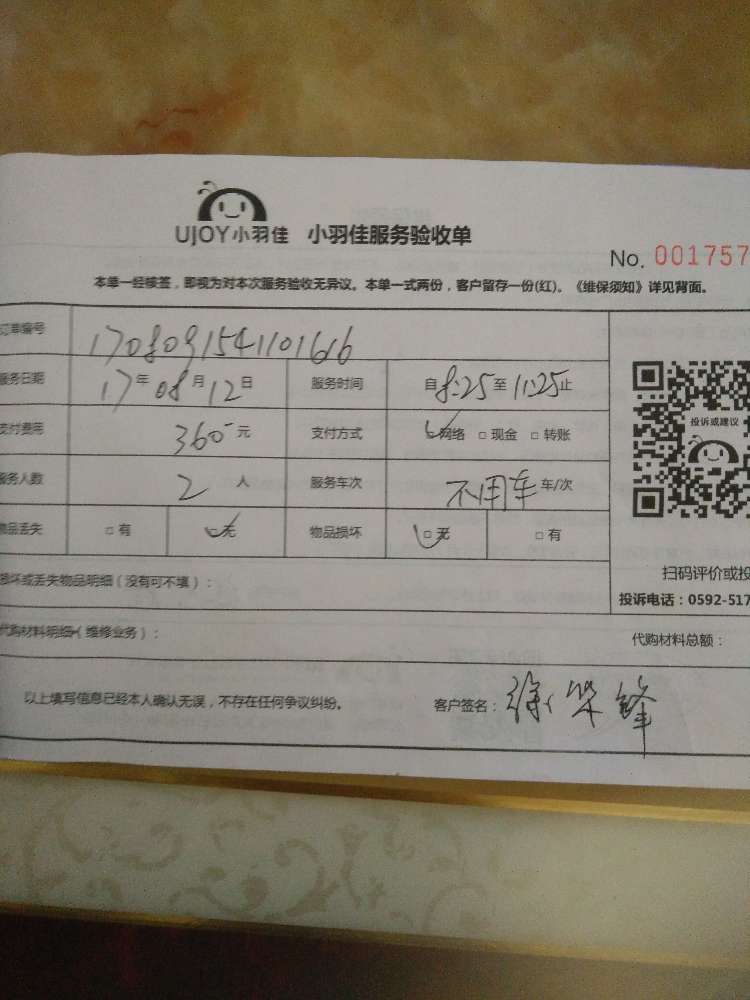 UJOY小羽佳 小羽佳服务验收单
No. 001757
本单一经核签，即视为对本次服务验收无异议。本单一式两份，客户留存一份(红)。《维保须知》详见背面。
订单编号 1708091541101616
服务日期 17年08月12日 服务时间 自8:25至11:25止
支付费用 360元 支付方式 网络 □ 现金 □ 转账
投诉或建议
服务人数 2人 服务车次 不用车 车/次
物品丢失 □ 有 无 物品损坏 □ 无 □ 有
损坏或丢失物品明细（没有可不填）：
扫码评价或投
投诉电话：0592-517
代购材料明细（维修业务）：
代购材料总额：
以上填写信息已经本人确认无误，不存在任何争议纠纷。
客户签名：徐 锋